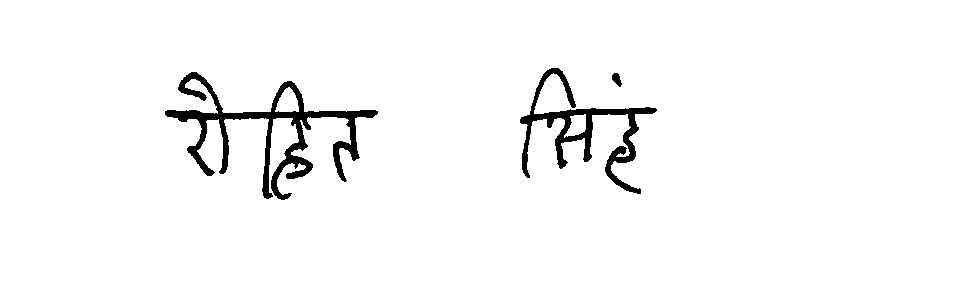 रोहित सिंह